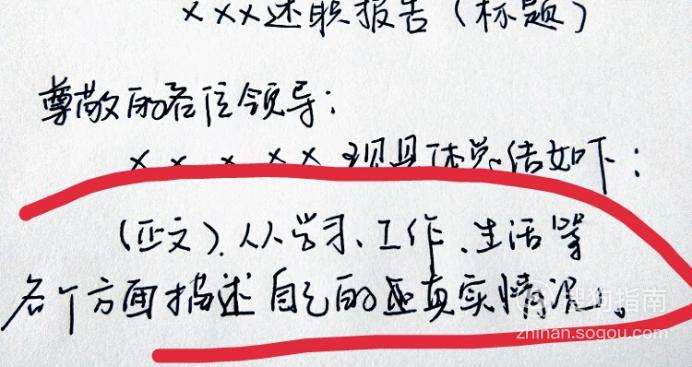 ×××述职报告（标题）
尊敬的各位领导：
×××××现具体总结如下：
（正文）、从学习、工作、生活等
各个方面描述自己的真实情况。
搜狗指南
zhinan.sogou.com